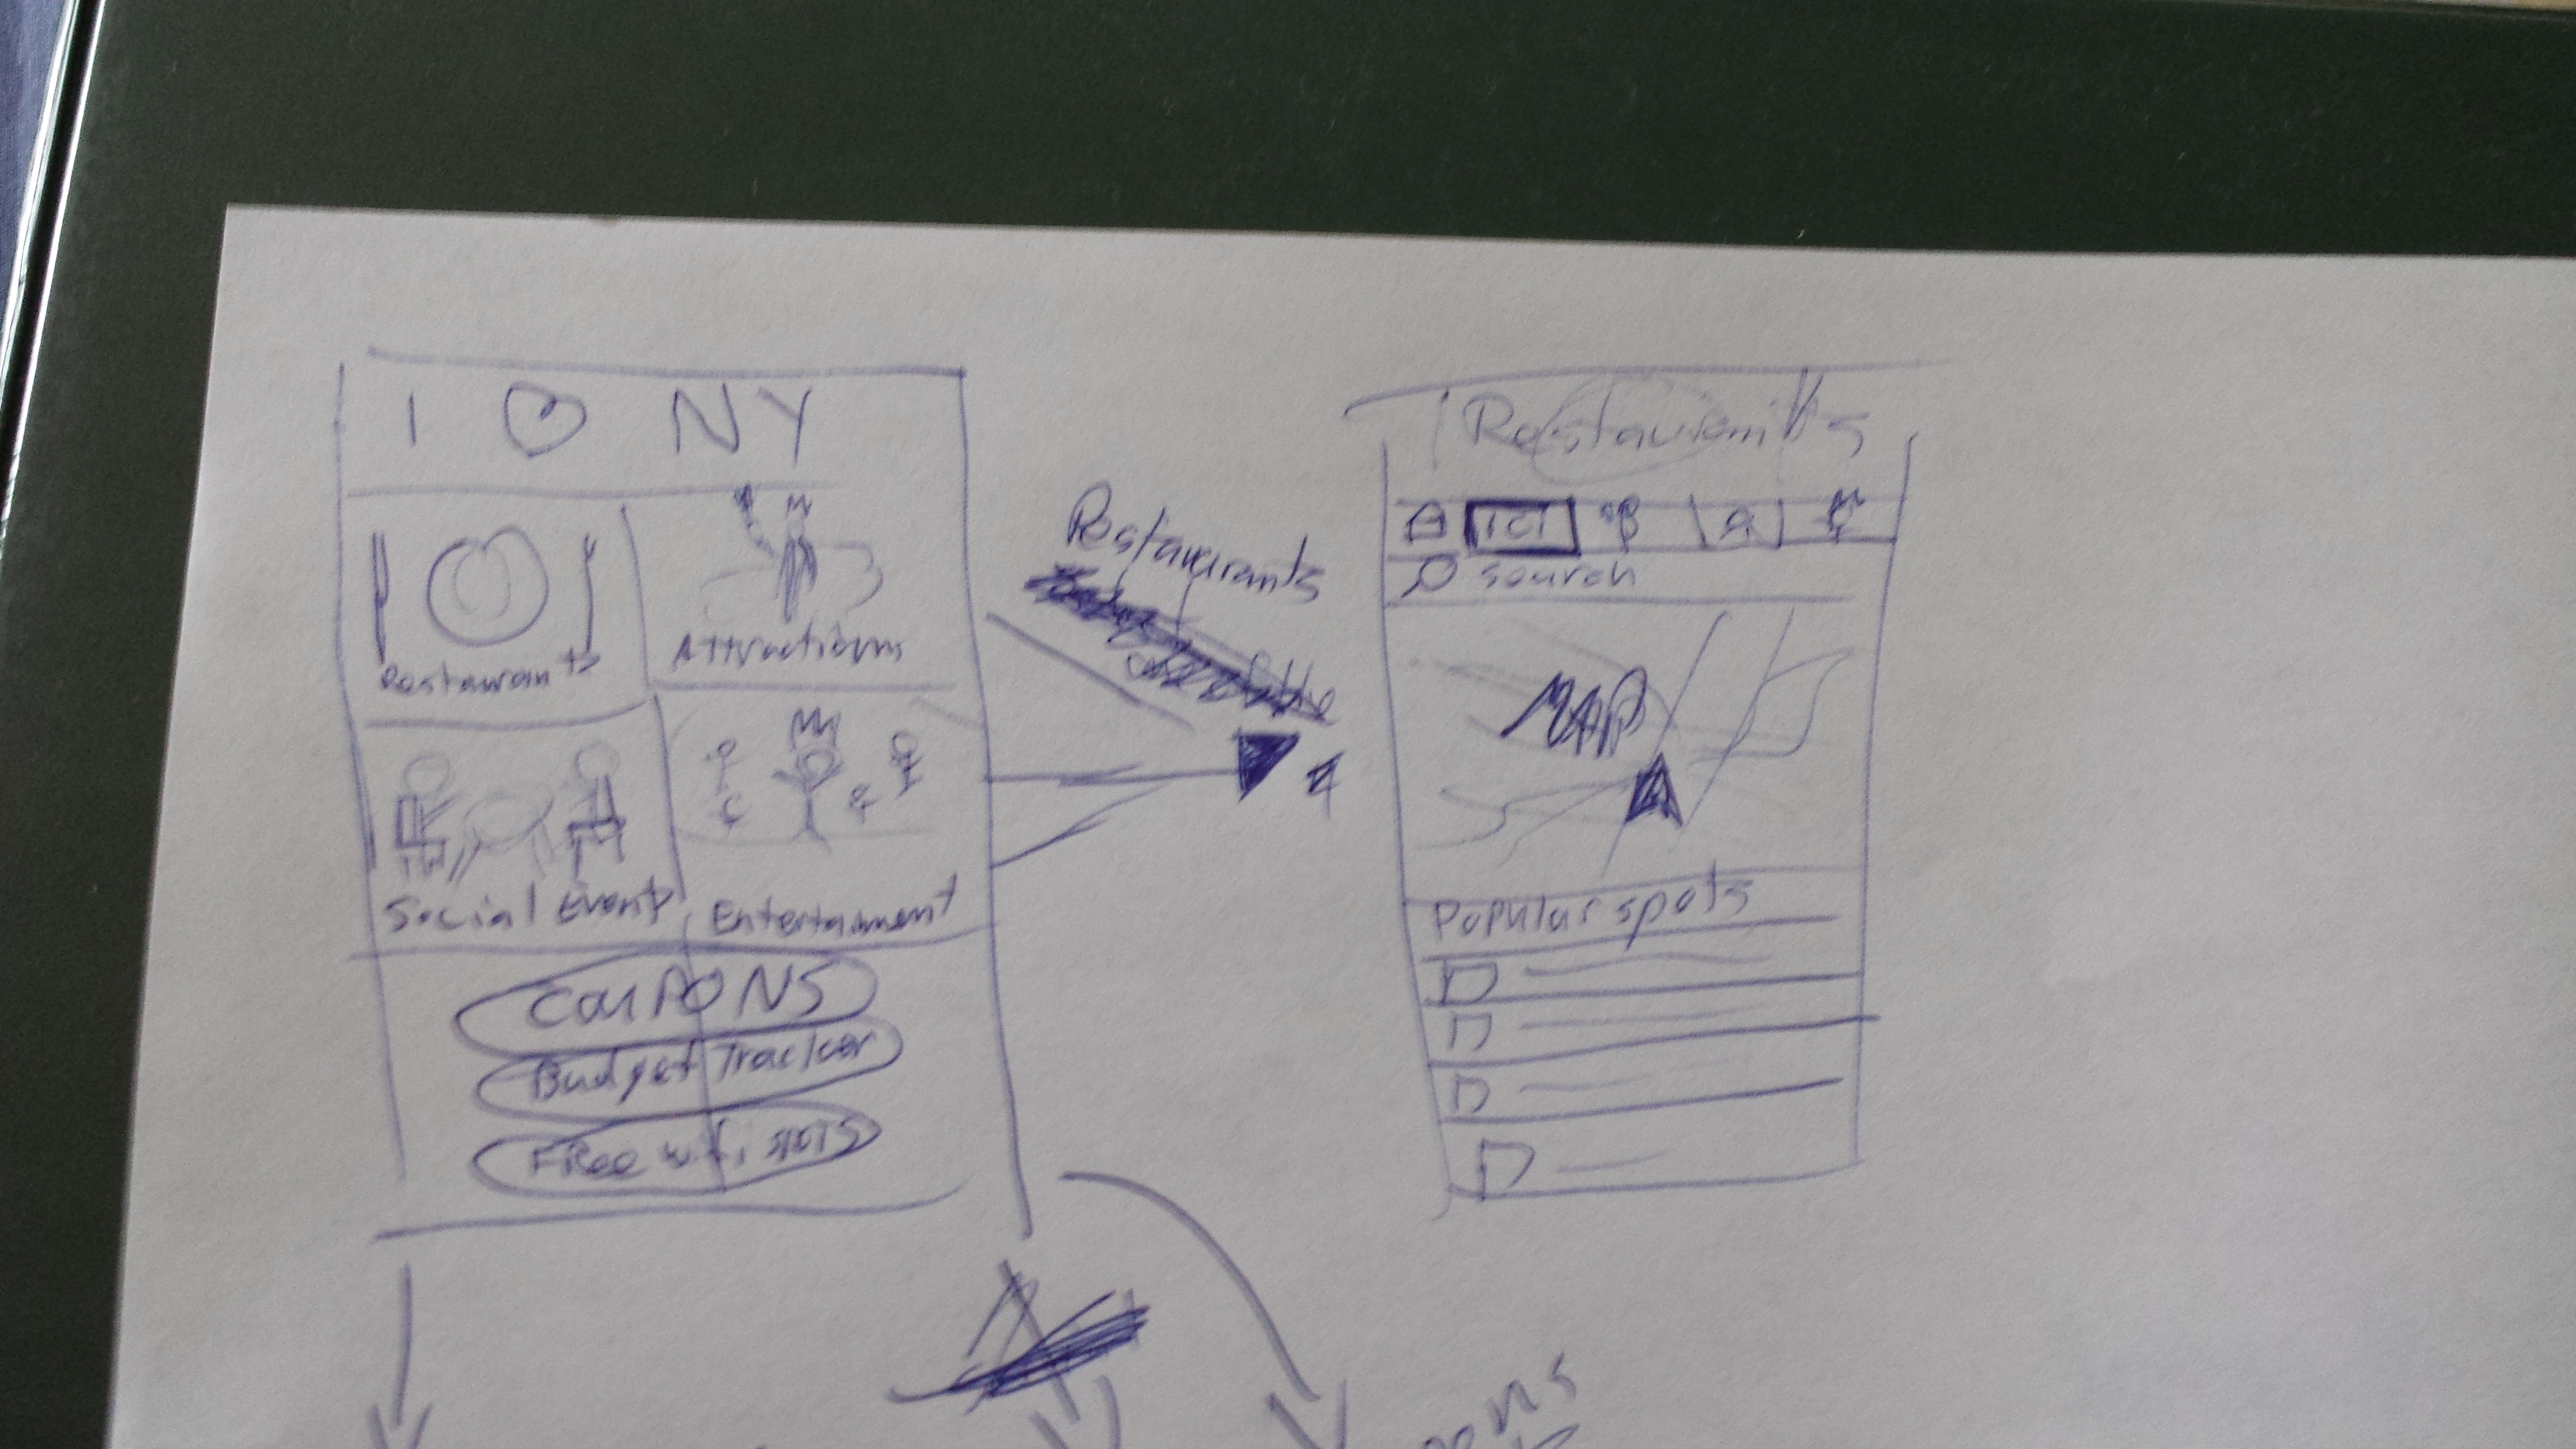 I ♡ NY
Restaurants
Attractions
Social Events
Entertainment
COUPONS
Budget Tracker
FRee wifi spots
Restaurants
Restaurants
search
MAP
Popular spots